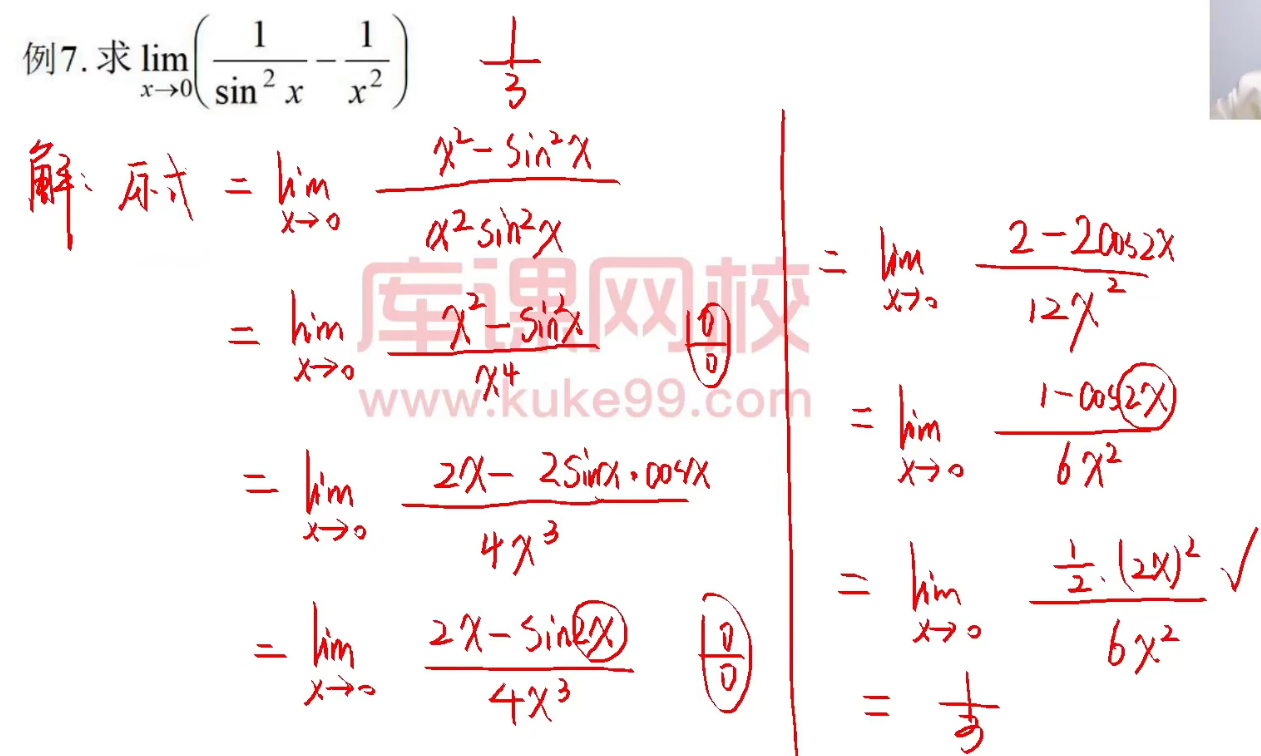 例7. 求 lim x→0 ( 1/sin² x − 1/x² ) 1/3
解: 原式 = lim x→0 (x² − sin²x)/(x² sin²x)
= lim x→0 (x² − sin²x)/x⁴ 0/0
= lim x→0 (2x − 2sinx·cosx)/4x³
= lim x→0 (2x − sin2x)/4x³ 0/0
= lim x→0 (2 − 2cos2x)/12x²
= lim x→0 (1 − cos2x)/6x²
= lim x→0 (1/2·(2x)²)/6x² ✓
= 1/3
库课网校
www.kuke99.com